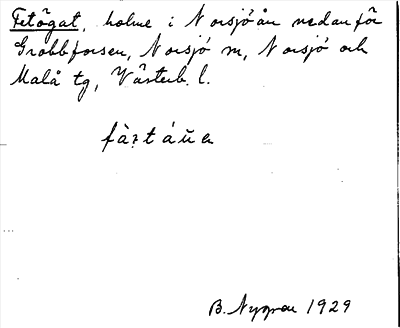 Fetögat, holme i Norsjöån nedanför
Grobbforsen, Norsjö sn, Norsjö och
Malå tg, Västerb. l.
B. Nygren 1929